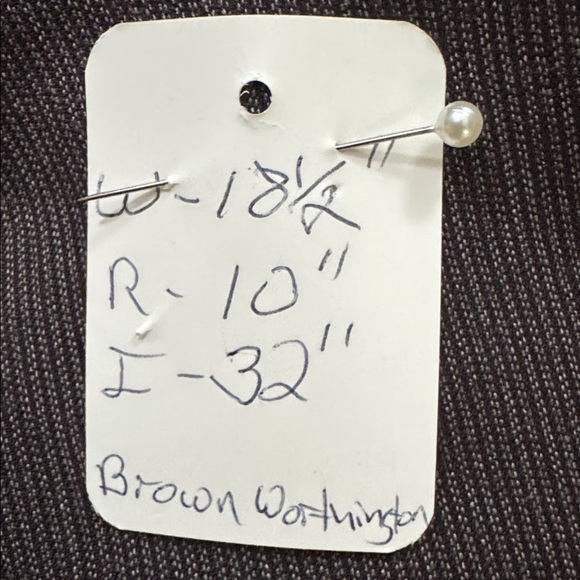 W-18½"
R- 10"
I-32"
Brown Worthington